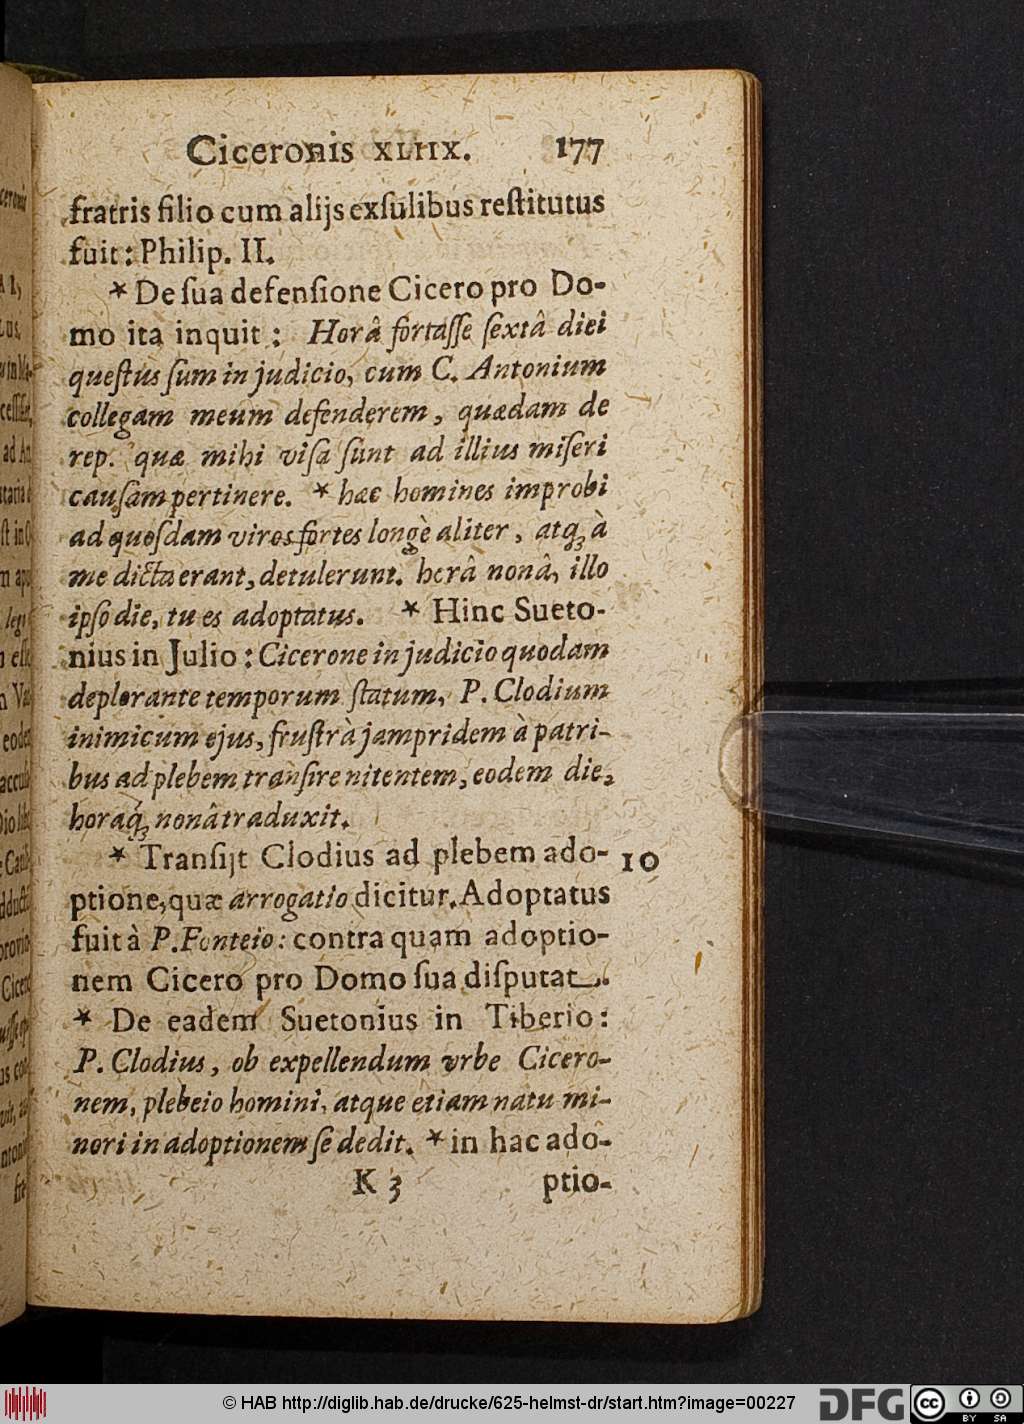 Ciceronis XLIIX. 177
fratris filio cum alijs exſulibus reſtitutus
fuit: Philip. II.
* De ſua defenſione Cicero pro Do-
mo ita inquit: Horâ fortaſſe ſextâ diei
queſtus ſum in judicio, cum C. Antonium
collegam meum defenderem, quædam de
rep. quæ mihi viſa ſunt ad illius miſeri
cauſam pertinere. * hæc homines improbi
ad quoſdam viros fortes longè aliter, atq; à
me dicta erant, detulerunt. horâ nonâ, illo
ipſo die, tu es adoptatus. * Hinc Sueto-
nius in Julio: Cicerone in judicio quodam
deplorante temporum ſtatum, P. Clodium
inimicum ejus, fruſtrà jampridem à patri-
bus ad plebem tranſire nitentem, eodem die,
horaq́; nonâ traduxit.
* Tranſijt Clodius ad plebem ado- 10
ptione, quæ arrogatio dicitur. Adoptatus
fuit à P. Fonteio: contra quam adoptio-
nem Cicero pro Domo ſua diſputat.
* De eadem Suetonius in Tiberio:
P. Clodius, ob expellendum vrbe Cicero-
nem, plebeio homini, atque etiam natu mi-
nori in adoptionem ſe dedit. * in hac ado-
K 3 ptio-
© HAB http://diglib.hab.de/drucke/625-helmst-dr/start.htm?image=00227
DFG
cc
BY SA